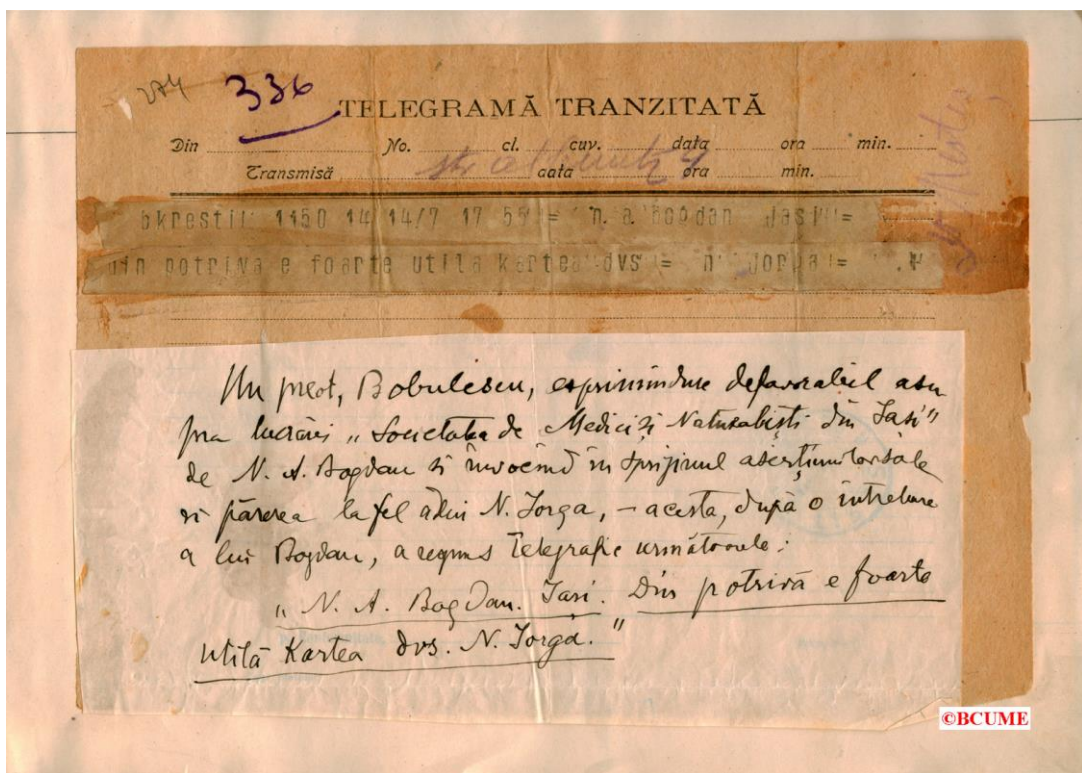 274
336
TELEGRAMĂ TRANZITATĂ
Din No. cl. cuv. data ora min.
Transmisă data ora min.
bkresti 1150 14 14/7 17 55 = n. a. bogdan jasi =
din potriva e foarte utila kartea dvs = n jorga =
Un preot, Bobulescu, esprimînduse defavorabil asu
pra lucrărei „Societatea de Medici și Naturaliști din Iasi"
de N. A. Bogdan si invocînd in sprijinul aserțiunilor sale
si părerea la fel a lui N. Iorga, – acesta, după o intrebare
a lui Bogdan, a respuns telegrafic următoarele:
„N. A. Bogdan. Iasi. Din potrivă e foarte
utilă Kartea dvs. N. Iorga."
©BCUME